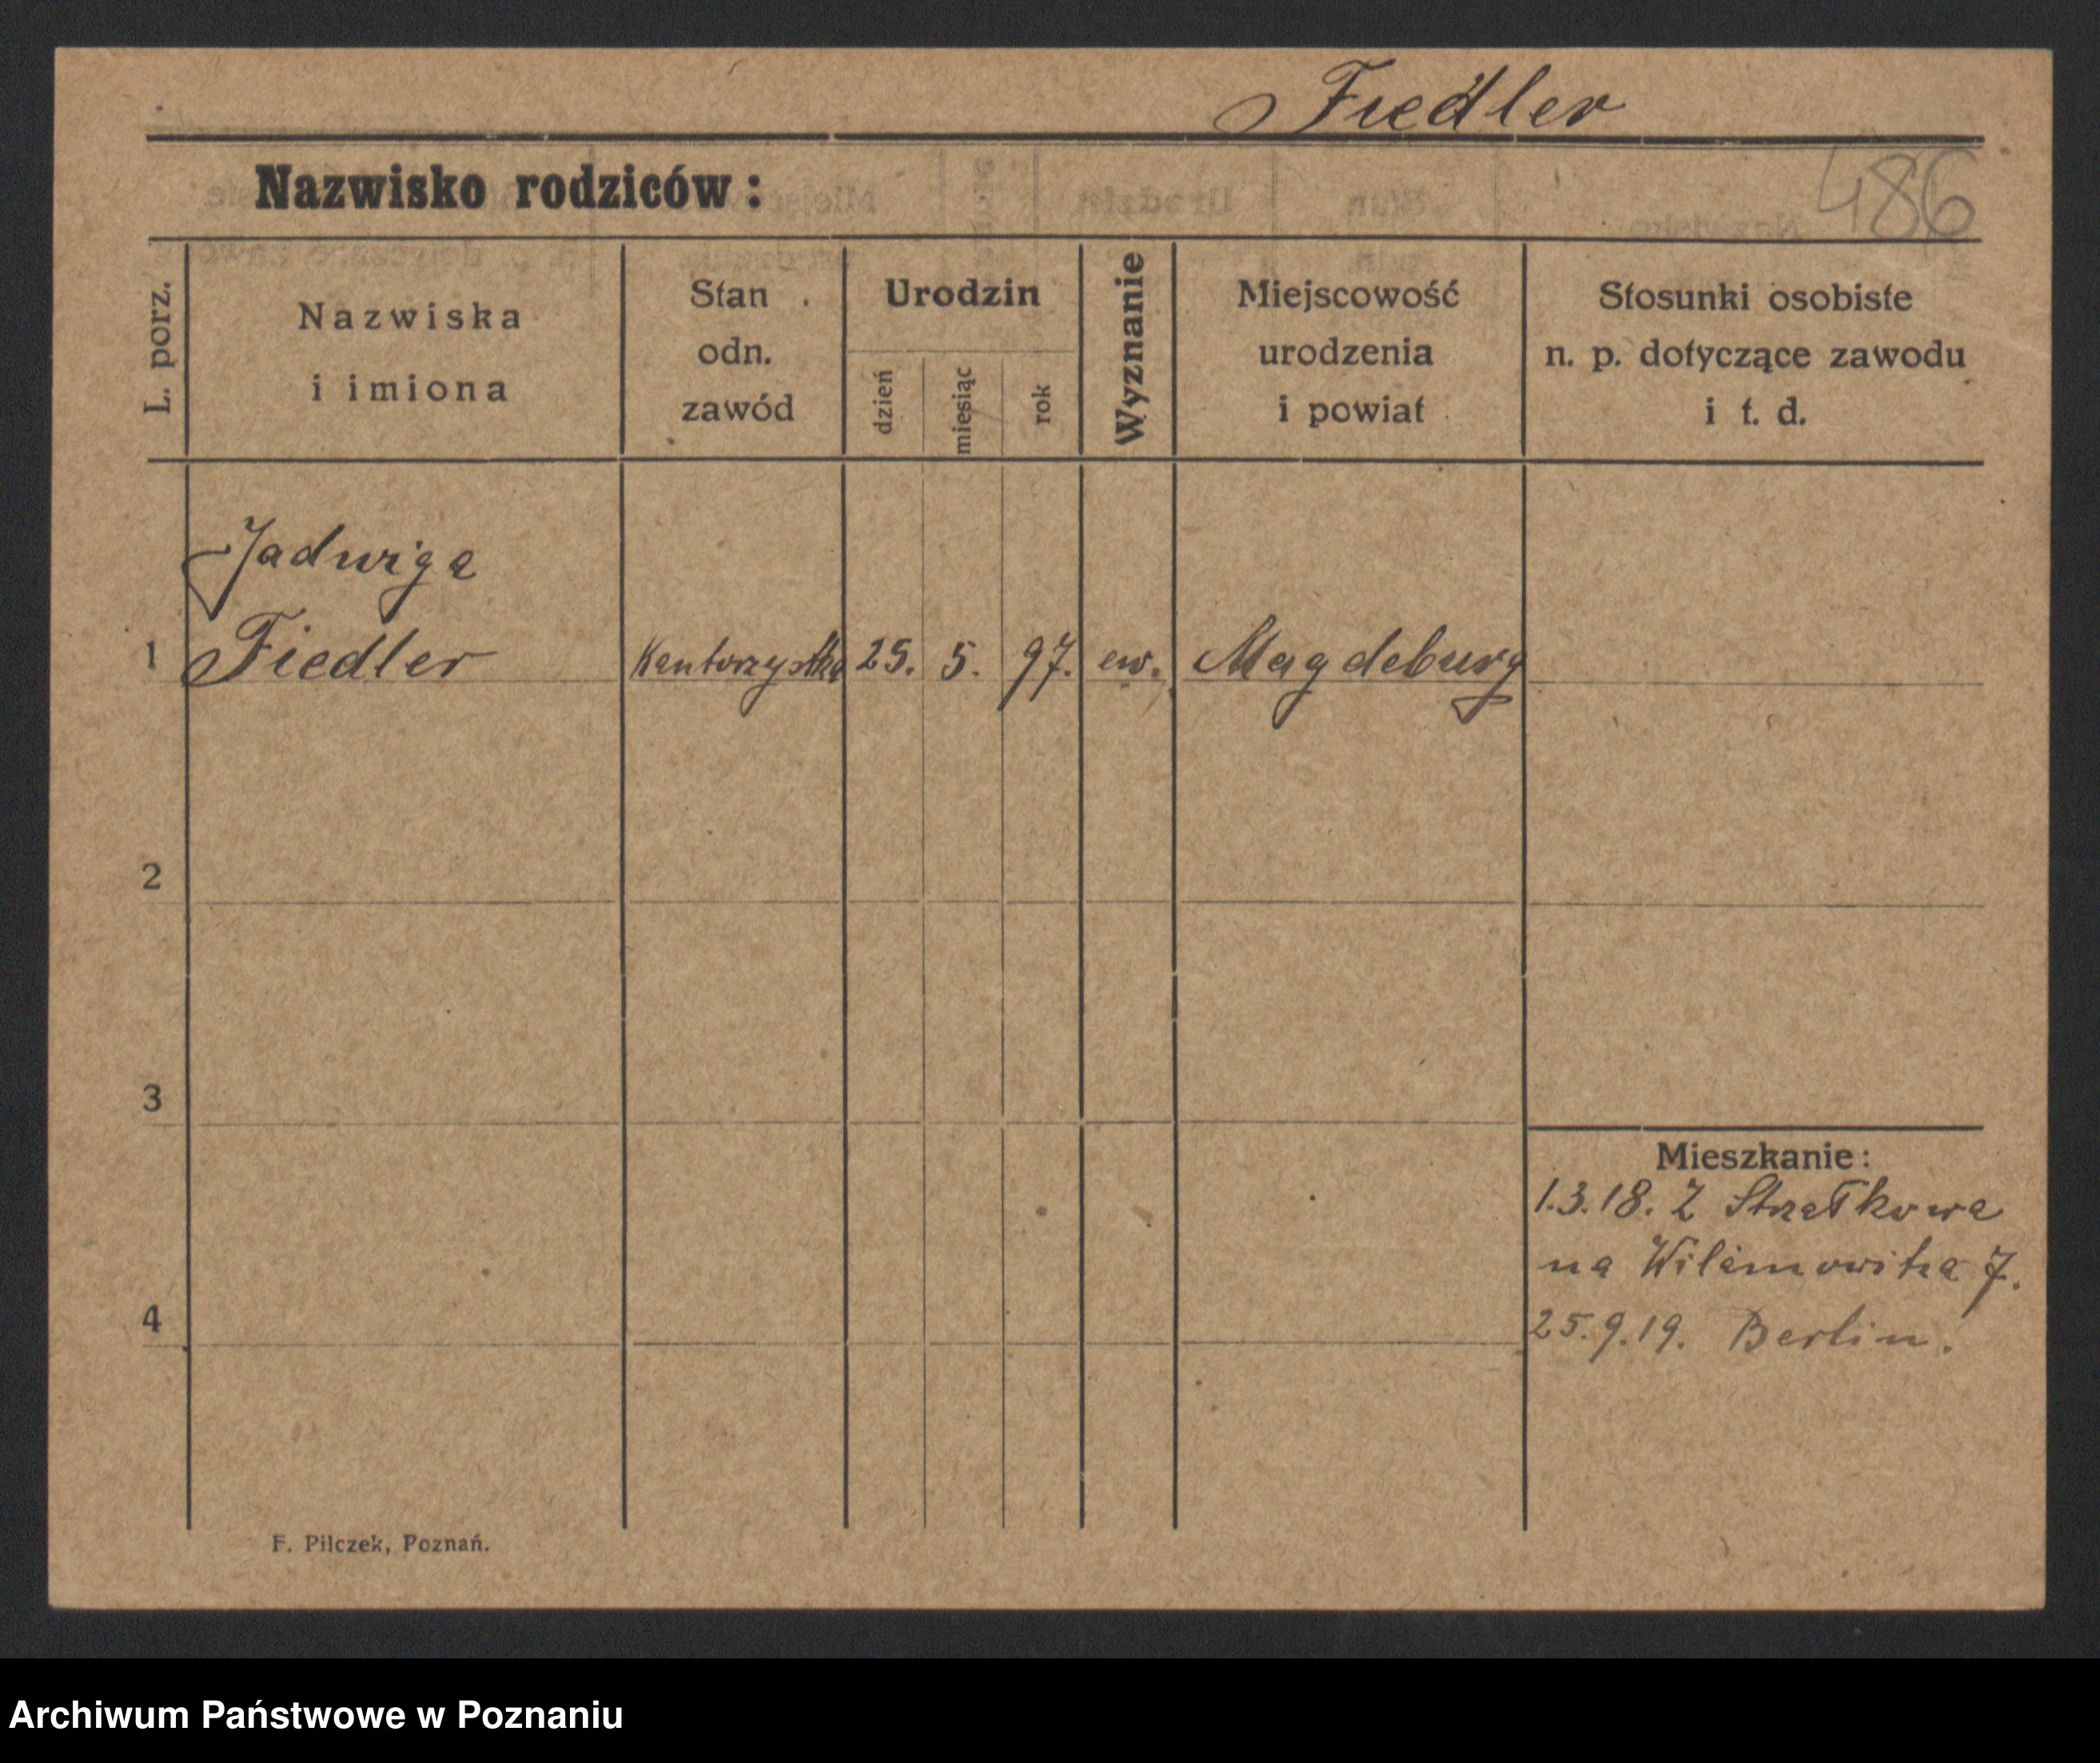 Fiedler
Nazwisko rodziców:
486
L. porz.
Nazwiska
i imiona
Stan
odn.
zawód
Urodzin
dzień
miesiąc
rok
Wyznanie
Miejscowość
urodzenia
i powiat
Stosunki osobiste
n. p. dotyczące zawodu
i t. d.
Jadwiga
1 Fiedler Kantorzystka 25. 5. 97. ew. Magdeburg
2
3
Mieszkanie:
1.3.18. Z Strzałkowa
na Wilamowitza 7.
4
25.9.19. Berlin.
F. Pilczek, Poznań.
Archiwum Państwowe w Poznaniu